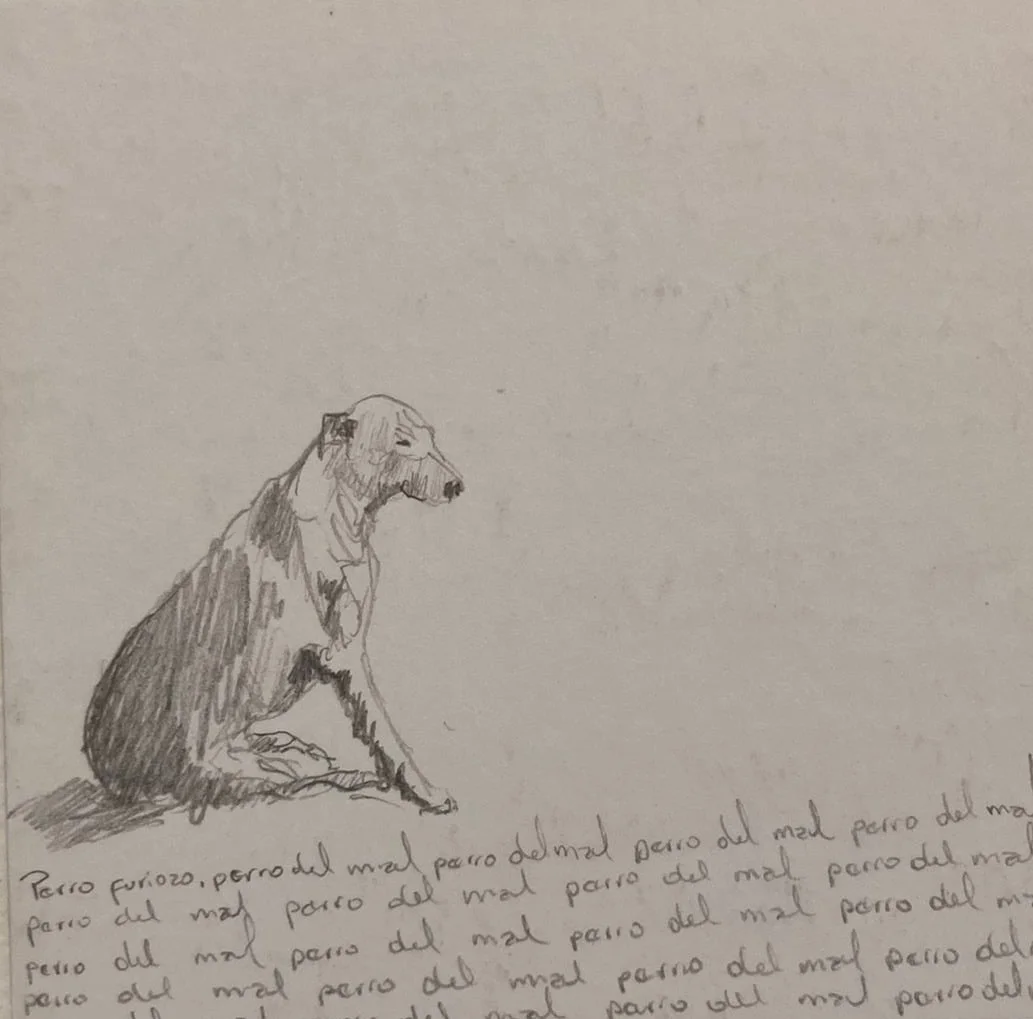 Perro furiozo, perro del mal perro del mal perro del mal perro del ma
perro del mal perro del mal perro del mal perro del mal
perro del mal perro del mal perro del mal perro del m
perro del mal perro del mal perro del mal perro del
del mal perro del mal perro del mal perro del